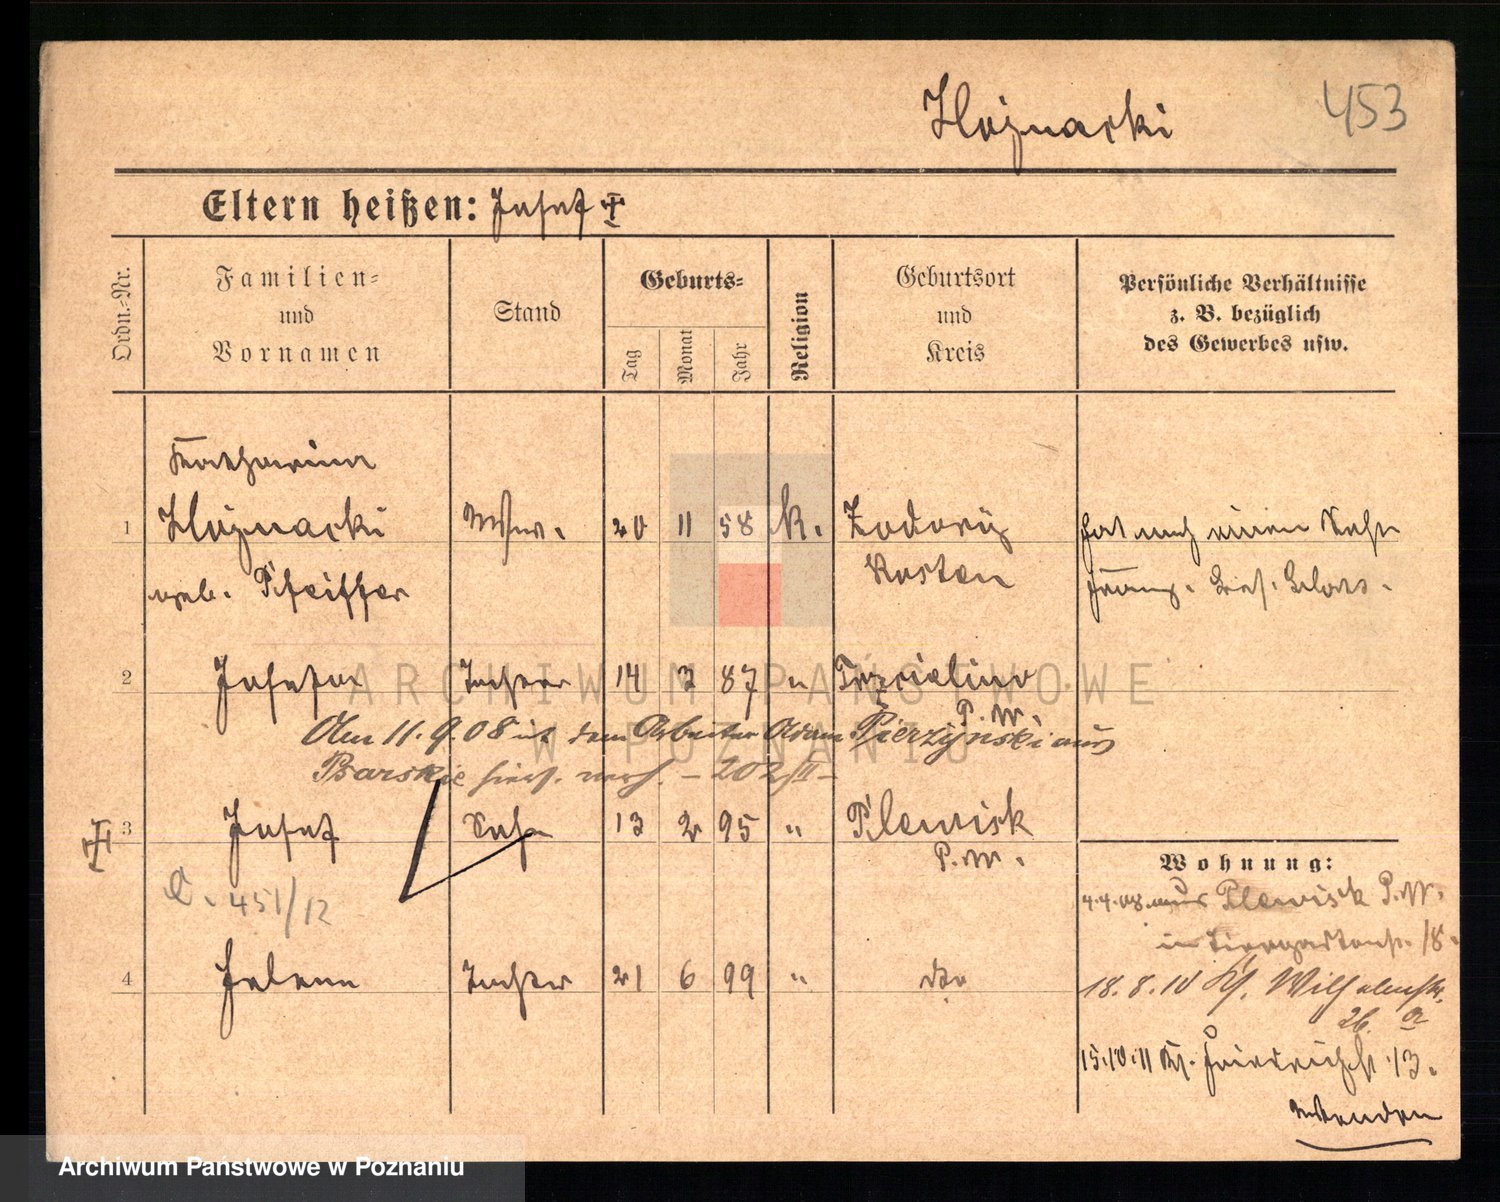 453
Eltern heißen: Josef
Ordn.-Nr.
Familien-
und
Vornamen
Stand
Geburts-
Tag
Monat
Jahr
Religion
Geburtsort
und
Kreis
Persönliche Verhältnisse
z. B. bezüglich
des Gewerbes usw.
Katharina
1 Wwe. 20 11 58 k. hat noch einen Sohn
Kosten
geb. Pfeiffer
Franz
2 Josefa Tochter 14 3 87 " Trzcielino
P. W.
Am 11.9.08 mit dem Arbeiter Adam Pierzynski aus
hiers. verh. - 202/II -
3 Josef Sohn 13 2 95 " Plewisk
P. W.
Wohnung:
C. 451/12
4.4.08 aus Plewisk P. W.
Tiergartenstr. 18.
4 Helene Tochter 21 6 99 " dto
18.8.10 Wilhelmstr.
26. a
15.10.11 Friedrichstr. 13.
Wenden
ARCHIWUM PAŃSTWOWE
W POZNANIU
Archiwum Państwowe w Poznaniu